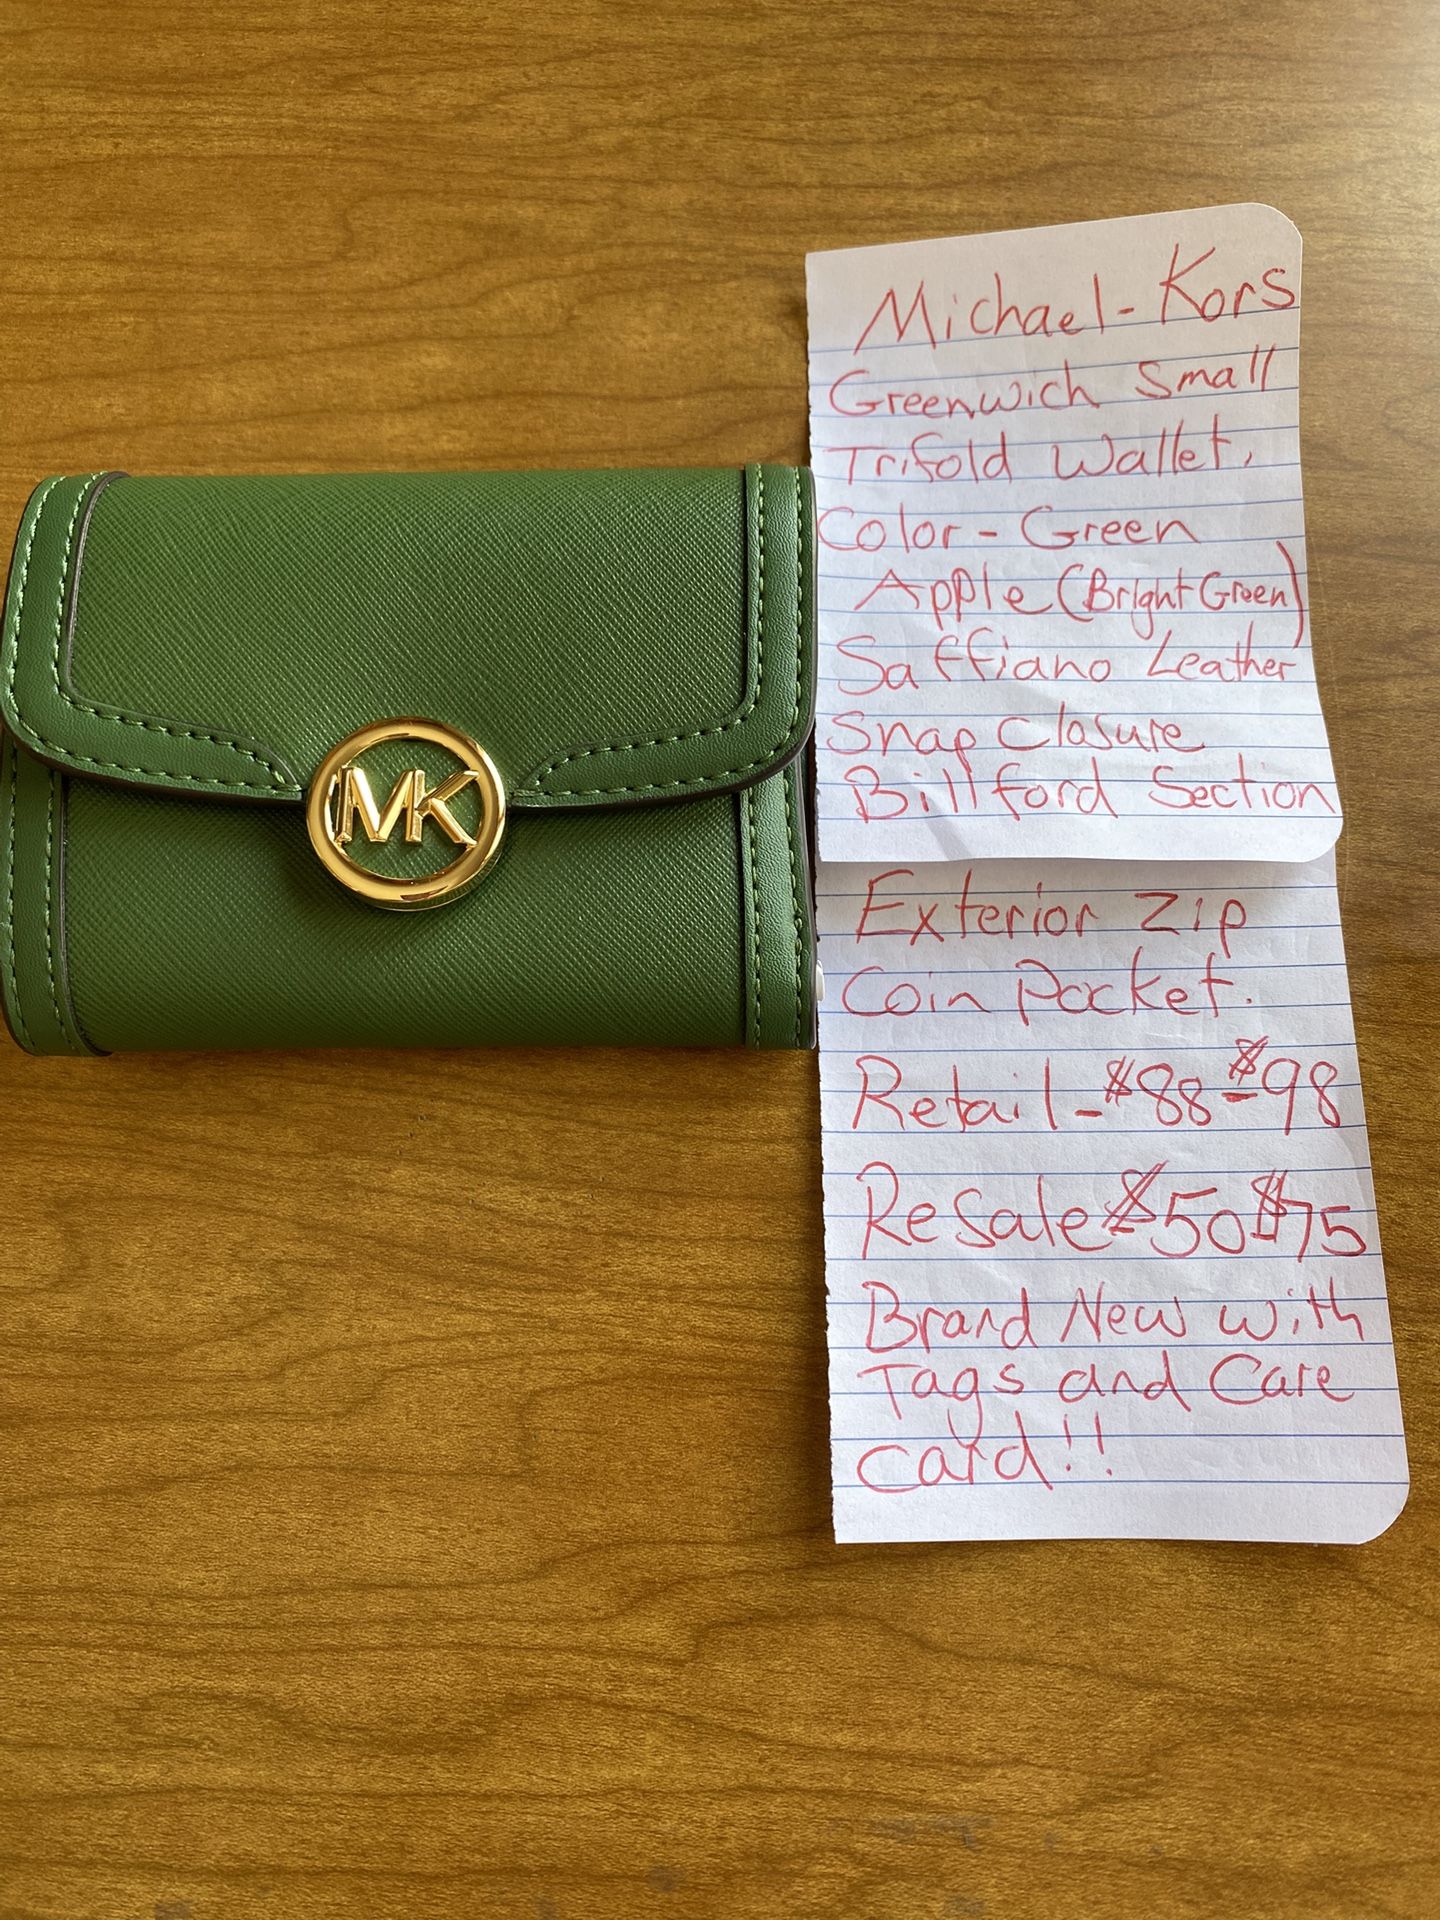 MK
Michael-Kors
Greenwich Small
Trifold Wallet,
Color - Green
Apple (Bright Green)
Saffiano Leather
Snap Closure
Billford Section
Exterior Zip
Coin Pocket.
Retail - $88-$98
Resale $50 $75
Brand New with
Tags and Care
Card!!